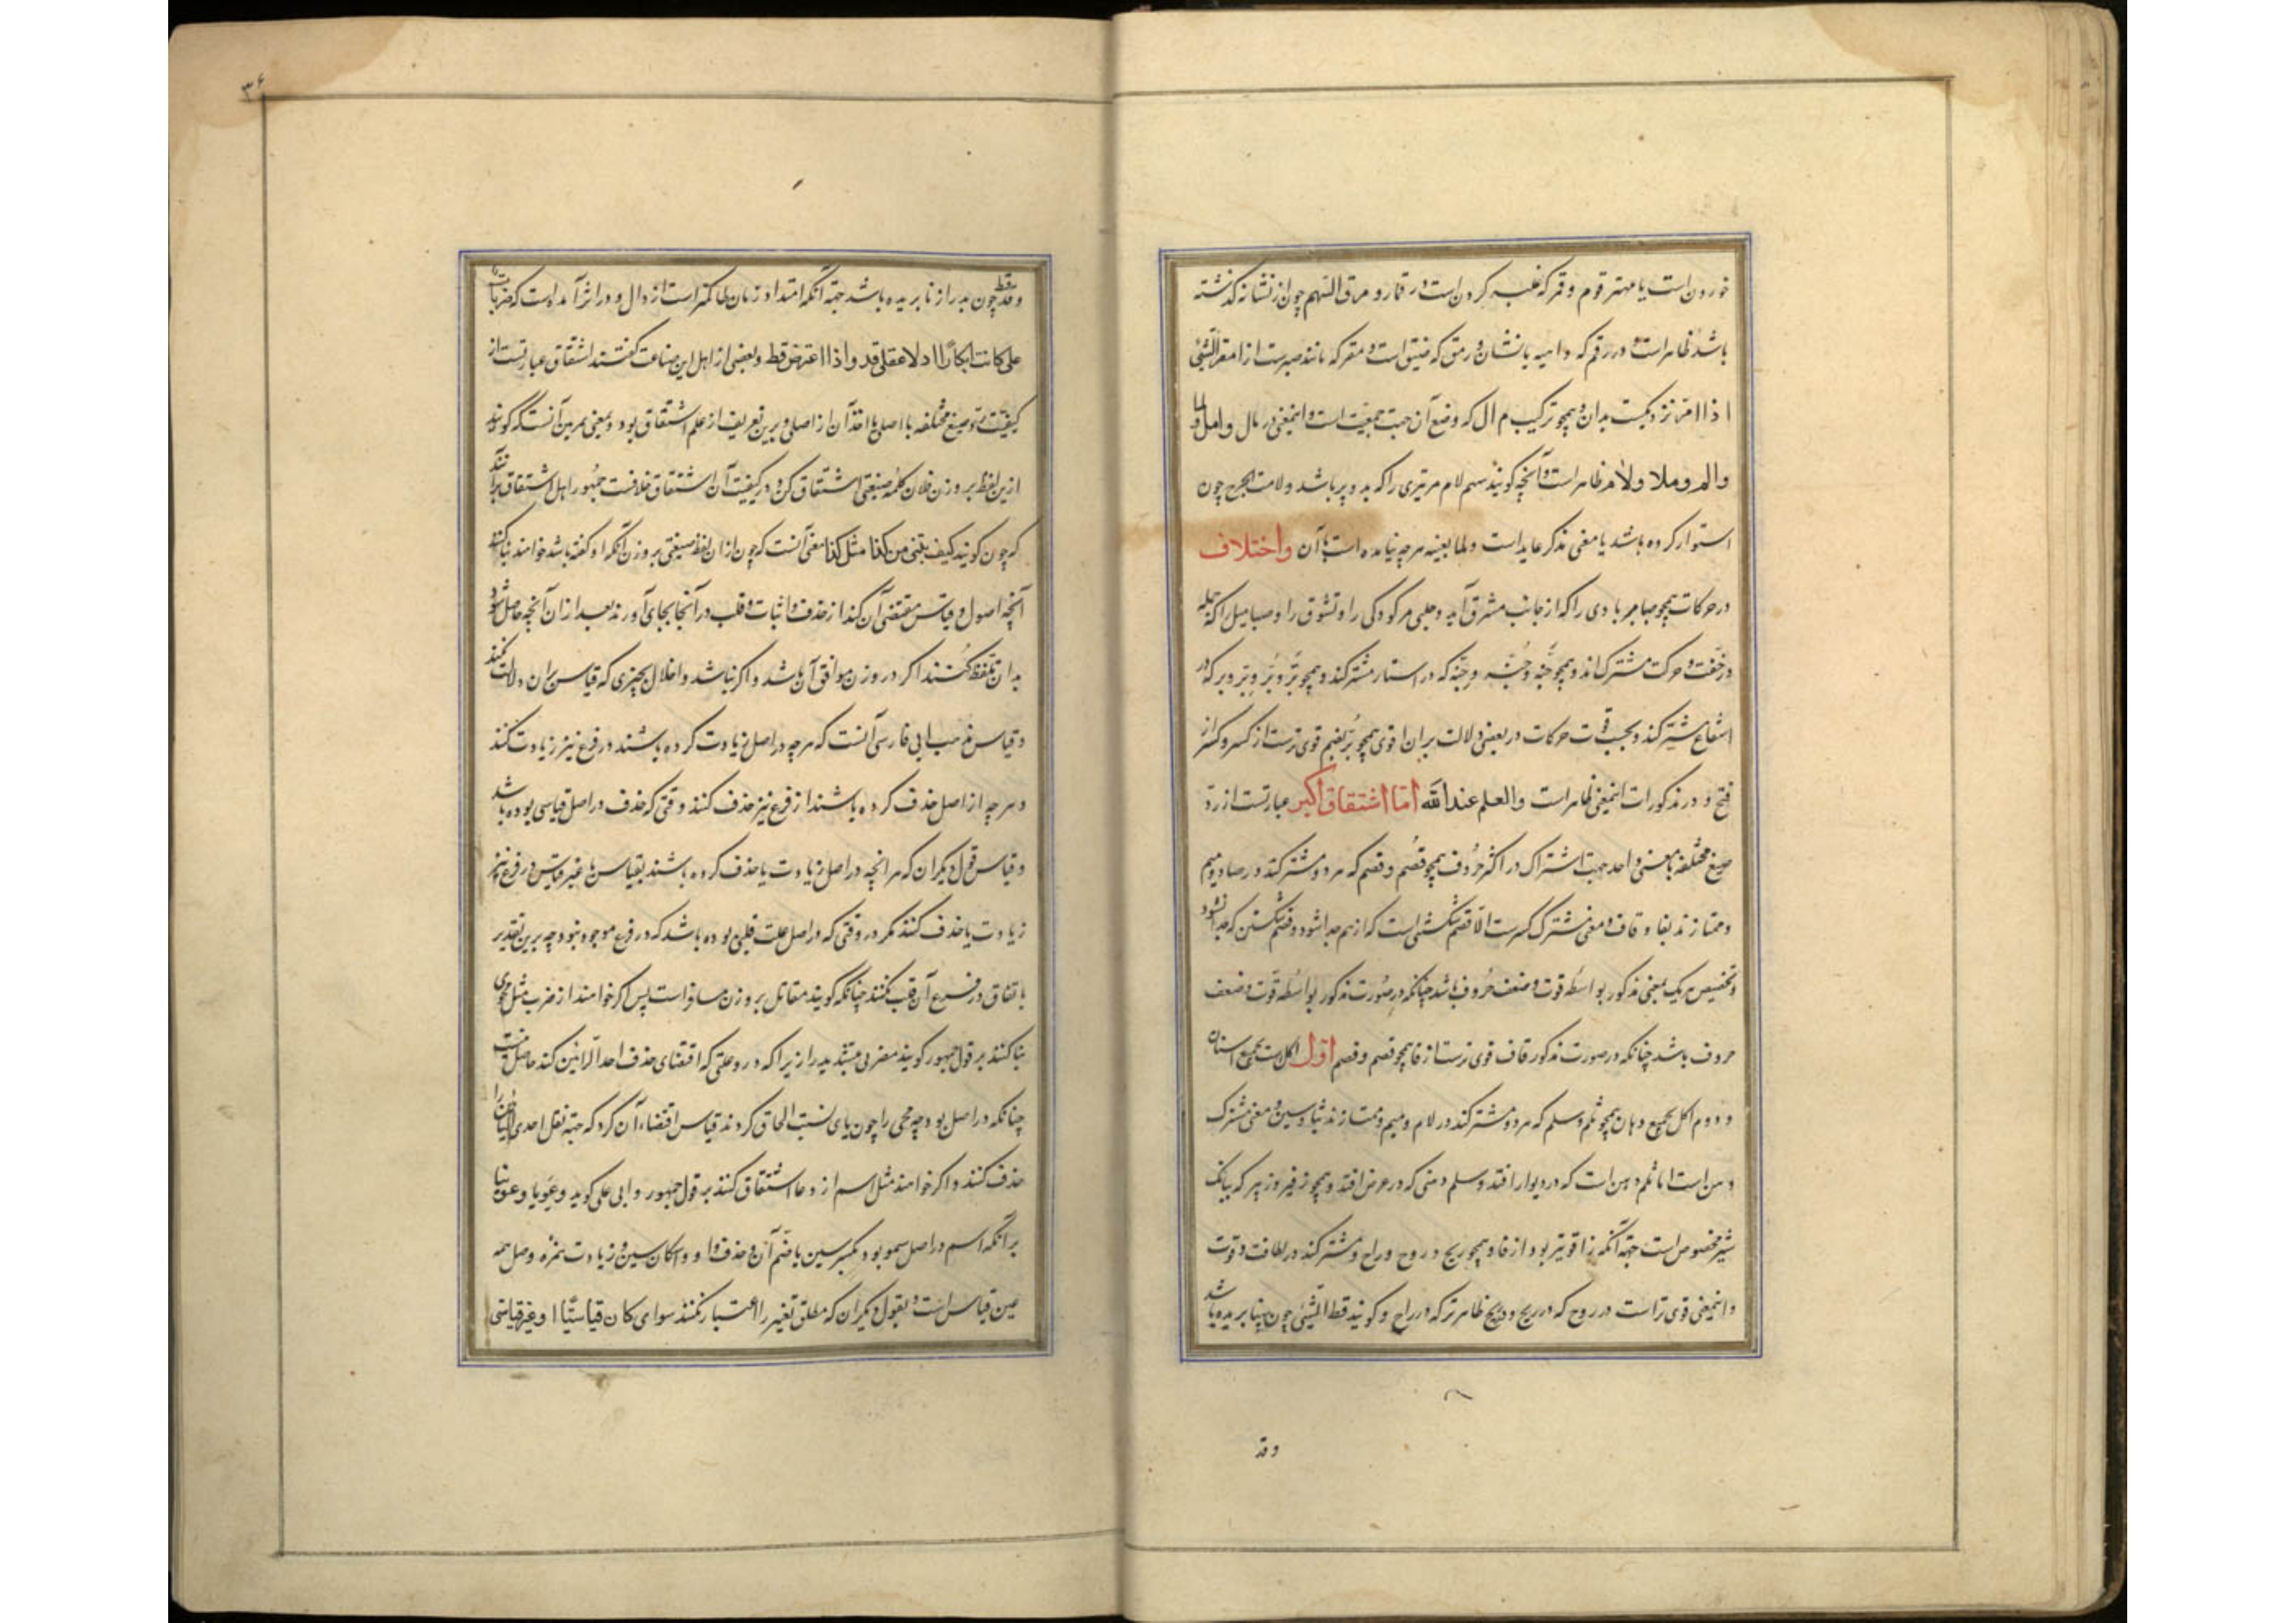 خوردن است یا مهتر قوم و قمر که غلبه کردن است در قمار و مرق السهم چون از نشانه گذشته
باشد ظاهر است و در رقم که داهیه یا نشان و رمق که ضیق است و مقر که مانند صبر است از امقر الشئ
اذا امر نزدیکست بدان و همچو ترکیب م ال که وضع آن جهت جمعیت است و اینمعنی در مال و امل و لما
والم و ملا و لام ظاهر است و آنچه گویند سهم لام مر تیری را که بدو پر باشد و لامت الجرح چون
استوار کرده باشد با معنی مذکر عاید است و لما بعینه هر چه نیامده است با آن واختلاف
در حرکات همچو صبا مر بادی را که از جانب مشرق آید و صبی مر کودکی را و تشوق را و صبا میل را که جمله
در خفت و حرکت مشترک اند و همچو جَنّه و جُنّه و جِنّه که در استتار مشترکند و همچو بَرّ و بُرّ و بِرّ و بر که در
اتساع مشترکند و بحسب قوت حرکات در بعضی دلالت بر آن اقوی همچو بُرّ بضم قوی ترست از کسر و کسر از
فتح و در مذکورات اینمعنی ظاهر است والعلم عند الله اما اشتقاق اکبر عبارتست از رد
صیغ مختلفه با معنی واحد بجهت اشتراک در اکثر حروف همچو قصم و فصم که هر دو مشترکند در صاد و میم
و ممتازند بفا و قاف و معنی مشترک کسر است الا قصم شکستنی است که از هم جدا شود و فصم شکستن که جدا نشود
و تخصیص هر یک بمعنی مذکور بواسطه قوت و ضعف حروف باشد چنانکه در صورت مذکور بواسطه قوت و ضعف
حروف باشد چنانکه در صورت مذکور قاف قوی ترست از فا همچو قضم و خضم اول اکلست بجمیع اسنان
و دوم اکل بجمیع دهان همچو ثلم و سلم که هر دو مشترکند در لام و میم و ممتازند بثا و سین و معنی مشترک
وهن است اما ثلم وهن است که در دیوار افتد و سلم وهنی که در عرض افتد و همچو زفیر و زئیر که ببانگ
شیر مخصوص است جهة آنکه زا قویتر بود از فا و همچو ریح و روح و راح و مشترکند در لطافت و قوت
و اینمعنی قوی تر است در روح که در ریح و در ریح ظاهرتر که در راح و گویند قط الشئ چون بپنا بریده باشد
وقد
۳۶
و قد چون بدرازنا بریده باشد جهة آنکه امتداد زمان طا کمتر است از دال و در اثر آمده است که ضربات
علی کانت ابکارا اذا اعتلی قد و اذا اعترض قط و بعضی از اهل این صناعت گفتند اشتقاق عبارتست از
کیفیت رد صیغ مختلفه با اصل یا اخذ آن از اصلی و برین تعریف از علم اشتقاق بود و بمعنی همین آنست که گویند
ازین لفظ بر وزن فلان کلمه صیغتی اشتقاق کن و در کیفیت آن اشتقاق خلافست جمهور اهل اشتقاق برانند
که چون گویند کیف تبنی من کذا مثل کذا معنی آنست که چون از ان لفظ صیغتی بر وزن آنکه او گفته باشد خواهند بنا کنند
آنچه اصول و قیاس مقتضی آن کند از حذف و اثبات و قلب در آنجا بجای آورند بعد از ان آنچه حاصل شود
بدان تلفظ کنند اگر در وزن موافق آن باشد و اگر نباشد و اخلال بچیزی که قیاس بر ان دلالت کند نکنند
و قیاس مذهب ابی فارسی آنست که هر چه در اصل زیادت کرده باشند در فرع نیز زیادت کنند
و هر چه از اصل حذف کرده باشند از فرع نیز حذف کنند وقتی که حذف در اصل قیاسی بوده باشد
و قیاس قول دیگران که هر انچه در اصل زیادت یا حذف کرده باشند بقیاس یا غیر قیاس در فرع نیز
زیادت یا حذف کنند مگر در وقتی که در اصل علت قلبی بوده باشد که در فرع موجود نبود چه برین تقدیر
باتفاق در فرع آن قلب نکنند چنانکه گویند مقاتل بر وزن مساوا است پس اگر خواهند از ضرب مثل محوی
بنا کنند بر قول جمهور گویند مضربی بتشدید را زیرا که درو علتی که اقتضای حذف احد الرائین کند حاصل نیست
چنانکه در اصل بود چه محی را چون یای نسبت الحاق کردند قیاس اقتضاء آن کرد که جهة نقل احدی الیائین را
حذف کنند و اگر خواهند مثل اسم از دعا اشتقاق کنند بر قول جمهور و ابی علی گوید دعو یا دعو بنا
بر آنکه اسم در اصل سمو بود بکسر سین یا ضم آن و حذف واو و اسکان سین و زیادت همزه وصل همه
عین قیاس است و بقول دیگران که مطلق تغییر را اعتبار کنند سواء کان قیاسیا او غیر قیاسی